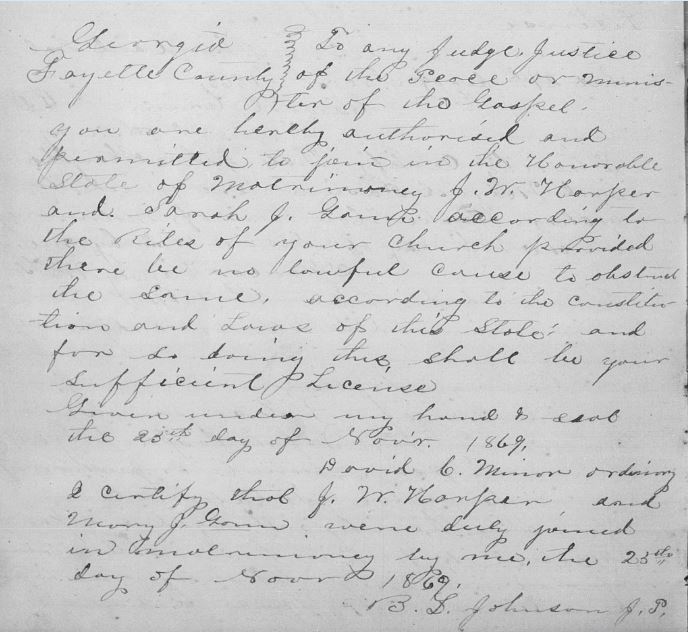 Georgia To any Judge, Justice
Fayette County of the Peace or Minis-
ter of the Gospel.
you are hereby authorised and
permitted to join in the Honorable
State of Matrimoney J. W. Harper
and Sarah J. according to
the Rites of your Church provided
there be no lawful cause to obstruct
the same, according to the constitu
tion and Laws of this State: and
for so doing this shall be your
sufficient License
Given under my hand & seal
the 25th day of Novr. 1869,
David C. Minor ordinary
I certify that J. W. Harper and
Mary J. were duly joined
in matrimoney by me, the 25th
day of Novr 1869.
B. L. Johnson J. P.